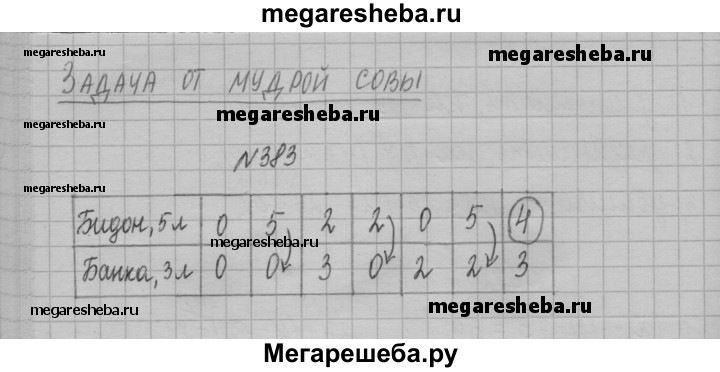 megaresheba.ru
megaresheba.ru
megaresheba.ru
ЗАДАЧА ОТ МУДРОЙ СОВЫ
megaresheba.ru
megaresheba.ru
N383
megaresheba.ru
Бидон, 5л 0 5 2 2 0 5 4
megaresheba.ru
Банка, 3л 0 0 3 0 2 2 3
megaresheba.ru
megaresheba.ru
Мегарешеба.ру